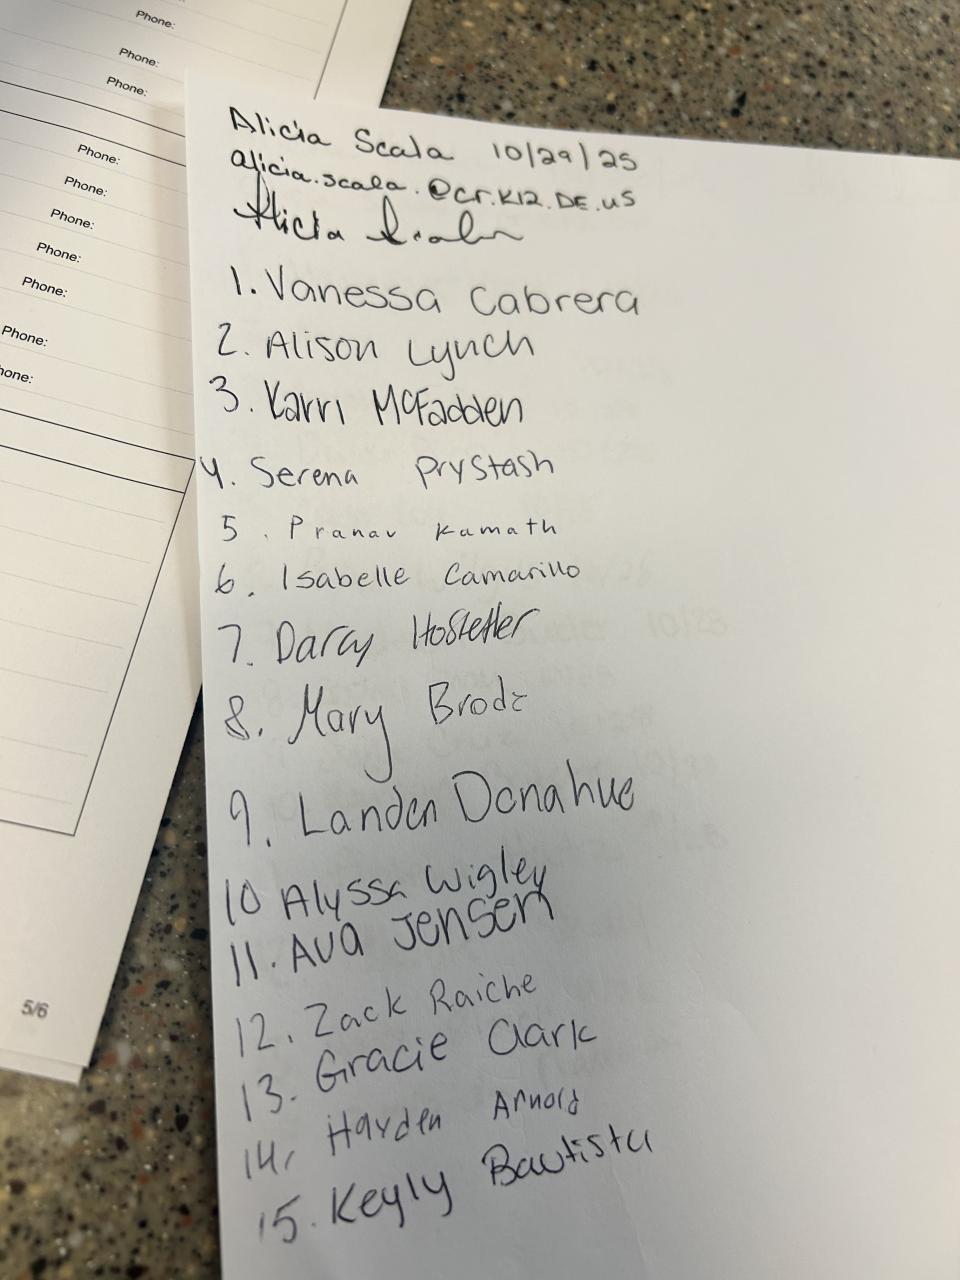 Phone:
Phone:
Phone:
Phone:
Phone:
Phone:
Phone:
Phone:
Phone:
hone:
5/6
Alicia Scala 10/29/25
alicia.scala.@cr.k12.DE.us
Alicia Scala
1. Vanessa Cabrera
2. Alison Lynch
3. Karri McFadden
4. Serena Prystash
5. Pranav Kamath
6. Isabelle Camarillo
7. Darcy Hostetler
8. Mary Brode
9. Landen Donahue
10 Alyssa Wigley
11. Ava Jensen
12. Zack Raiche
13. Gracie Clark
14. Hayden Arnold
15. Keyly Bautista